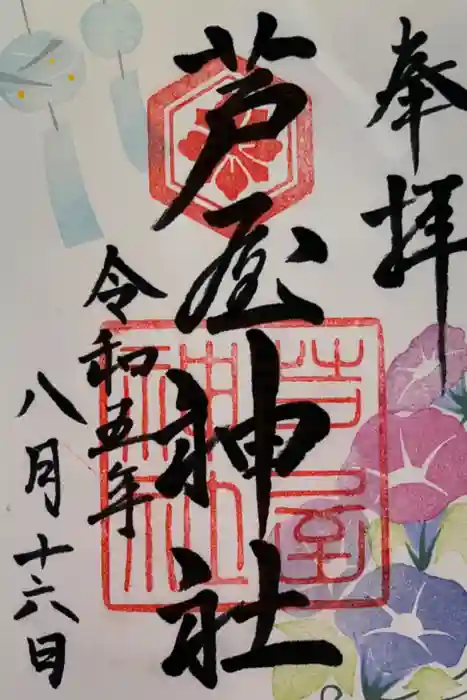 奉拝
芦屋神社
芦屋
神社
令和五年
八月十六日